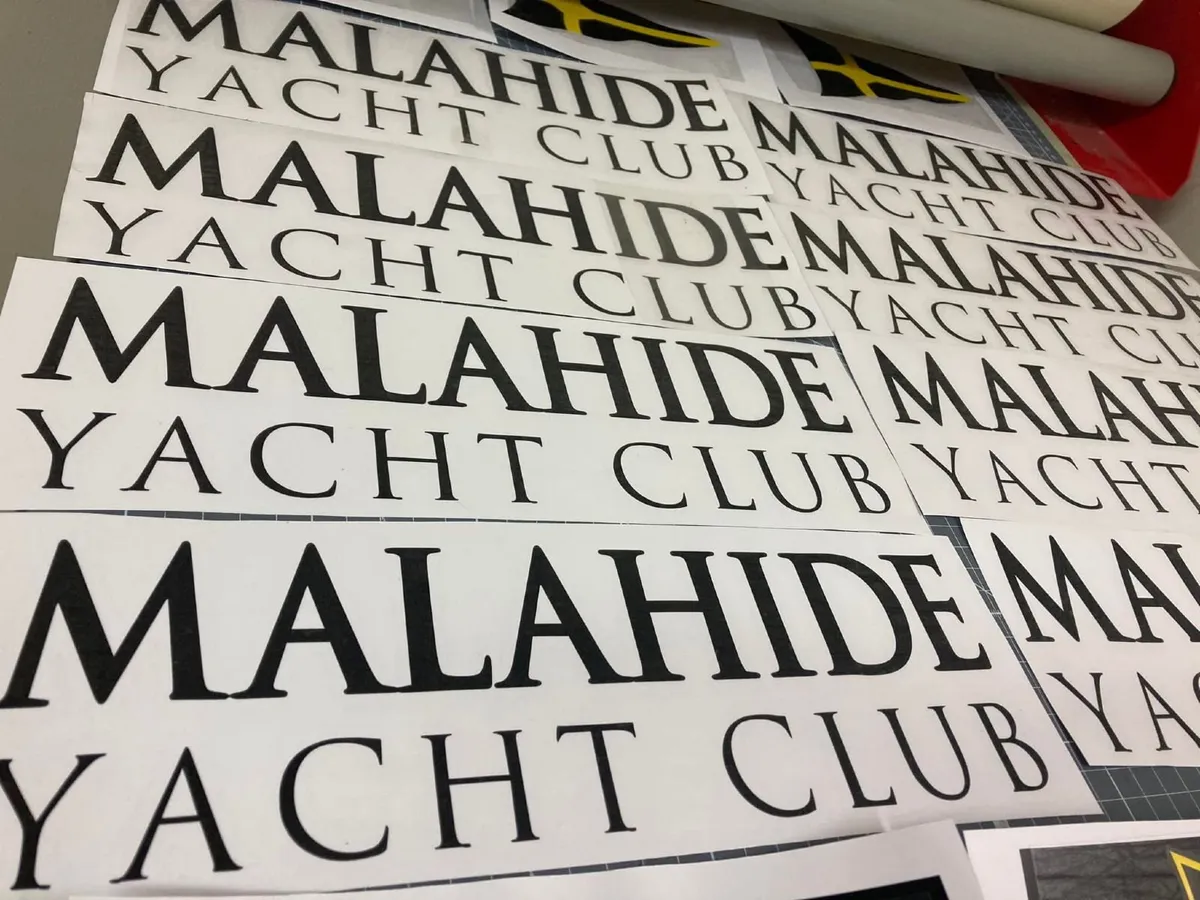 MALAHIDE
YACHT CLUB
MALAHIDE
YACHT CLUB
MALAHIDE
YACHT CLUB
MALAHIDE
YACHT CLUB
MALAHIDE
YACHT CLUB
MALAHIDE
YACHT CLU
MALAH
YACHT
MAL
YAC